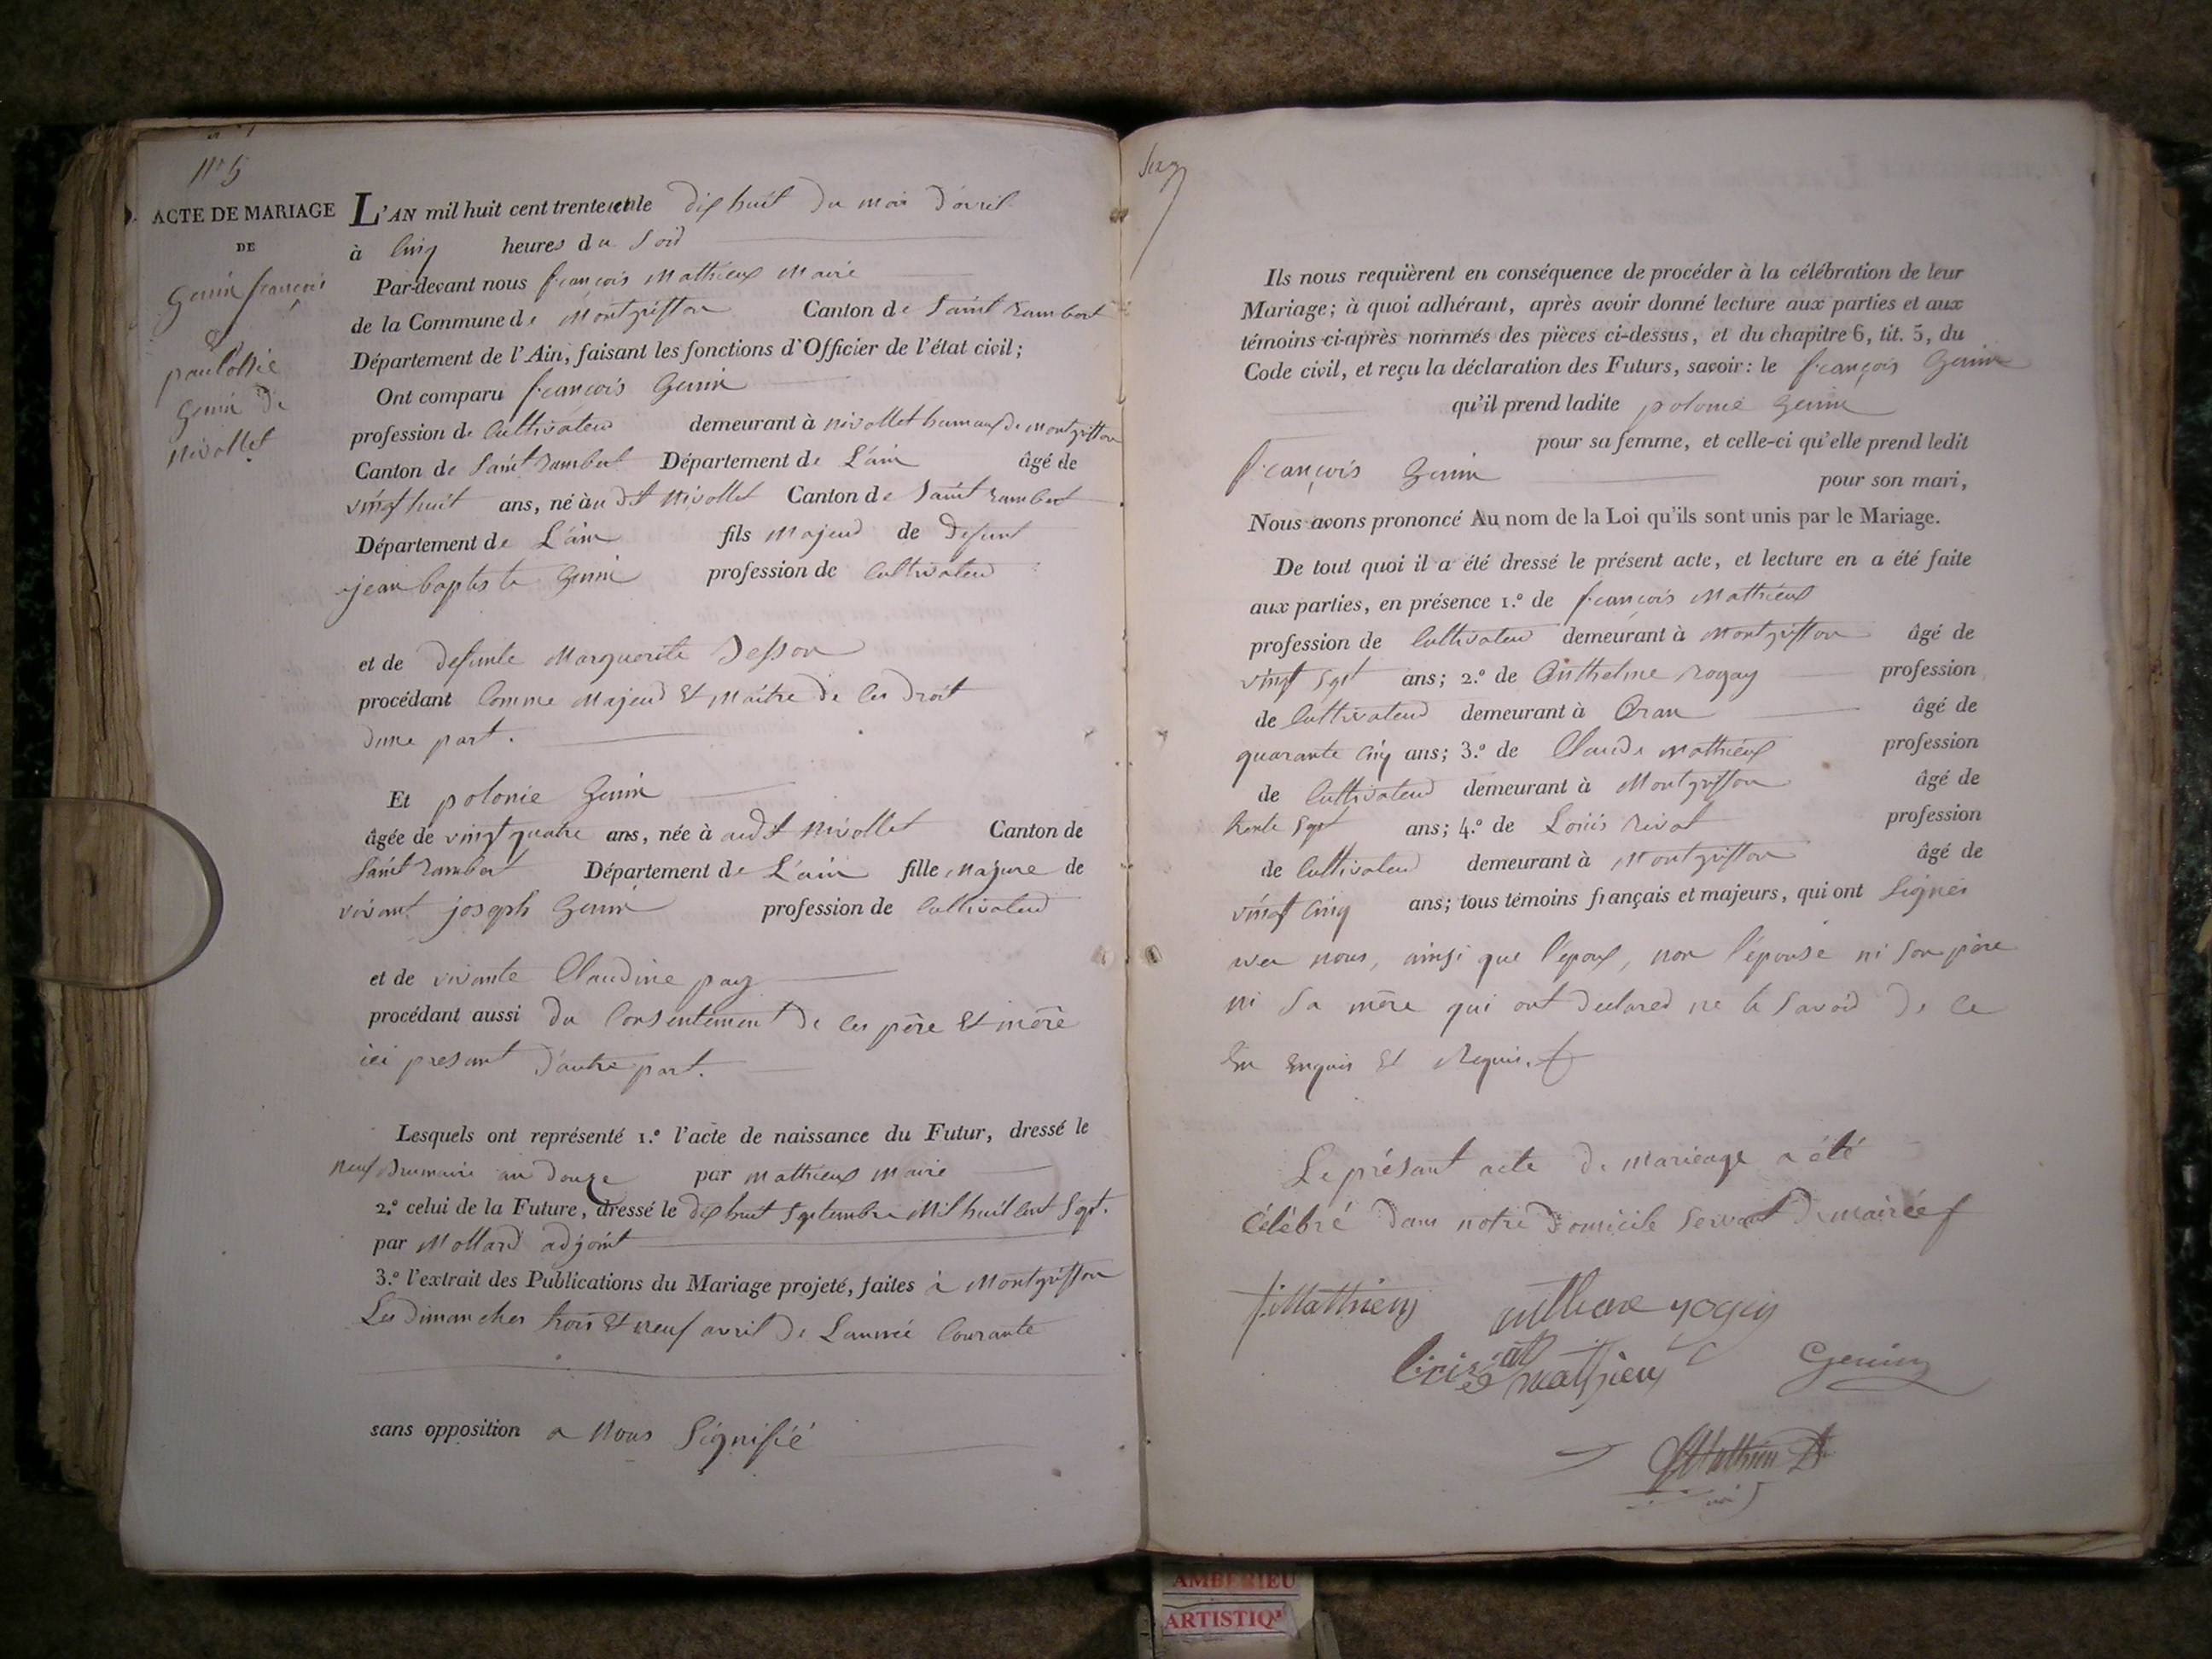 N° 5
ACTE DE MARIAGE
DE
Genin françois
&
Genin de
Nivollet
L'AN mil huit cent trente le dix huit du mois d'avril
à Cinq heures du Soir
Par-devant nous françois Mathieux Maire
de la Commune de Montgriffon Canton de Saint Rambert
Département de l'Ain, faisant les fonctions d'Officier de l'état civil;
Ont comparu françois Genin
profession de Cultivateur demeurant à nivollet hameaux de Montgriffon
Canton de Saint Rambert Département de L'ain âgé de
vingt huit ans, né àu dt Nivollet Canton de Saint Rambert
Département de L'ain fils Majeur de Defunt
jean baptiste Genin profession de Cultivateur
et de defunte Marguerite
procédant Comme Majeur Et Maitre de Ces Droit
dune part.
Et polonie Genin
âgée de vingt quatre ans, née à audt Nivollet Canton de
Saint Rambert Département de L'ain fille Majure de
vivant joseph Genin profession de Cultivateur
et de vivante Claudine pay
procédant aussi du Consentement de Ces père Et mère
ici presant d'autre part.
Lesquels ont représenté 1.º l'acte de naissance du Futur, dressé le
neuf Brumaire an Douze par Mathieux Maire
2.º celui de la Future, dressé le dix huit Septembre Mil huit Cent Sept.
par Mollard adjoint
3.º l'extrait des Publications du Mariage projeté, faites à Montgriffon
Les Dimanches trois Et neuf avril de Lannée Courante
sans opposition a Nous Signifié
Ils nous requièrent en conséquence de procéder à la célébration de leur
Mariage; à quoi adhérant, après avoir donné lecture aux parties et aux
témoins ci-après nommés des pièces ci-dessus, et du chapitre 6, tit. 5, du
Code civil, et reçu la déclaration des Futurs, savoir: le françois Genin
qu'il prend ladite polonie Genin
pour sa femme, et celle-ci qu'elle prend ledit
françois Genin pour son mari,
Nous avons prononcé Au nom de la Loi qu'ils sont unis par le Mariage.
De tout quoi il a été dressé le présent acte, et lecture en a été faite
aux parties, en présence 1.º de françois Mathieux
profession de Cultivateur demeurant à Montgriffon âgé de
vingt Sept ans; 2.º de Anthelme Rogay profession
de Cultivateur demeurant à Oran âgé de
quarante Cinq ans; 3.º de Claude Mathieux profession
de Cultivateur demeurant à Montgriffon âgé de
trente Sept ans; 4.º de Louis Rivat profession
de Cultivateur demeurant à Montgriffon âgé de
vingt Cinq ans; tous témoins français et majeurs, qui ont Signés
avec nous, ainsi que l'époux, non l'épouse ni Son père
ni Sa mère qui ont declared ne le Savoir de Ce
Enquis Et Requis.
Le présant acte de Marieage a été
Célébré dans notre Domicile Servant de mairée
f. Mathieux
mathieux
Genin
Mathieu
AMBERIEU
ARTISTIQ